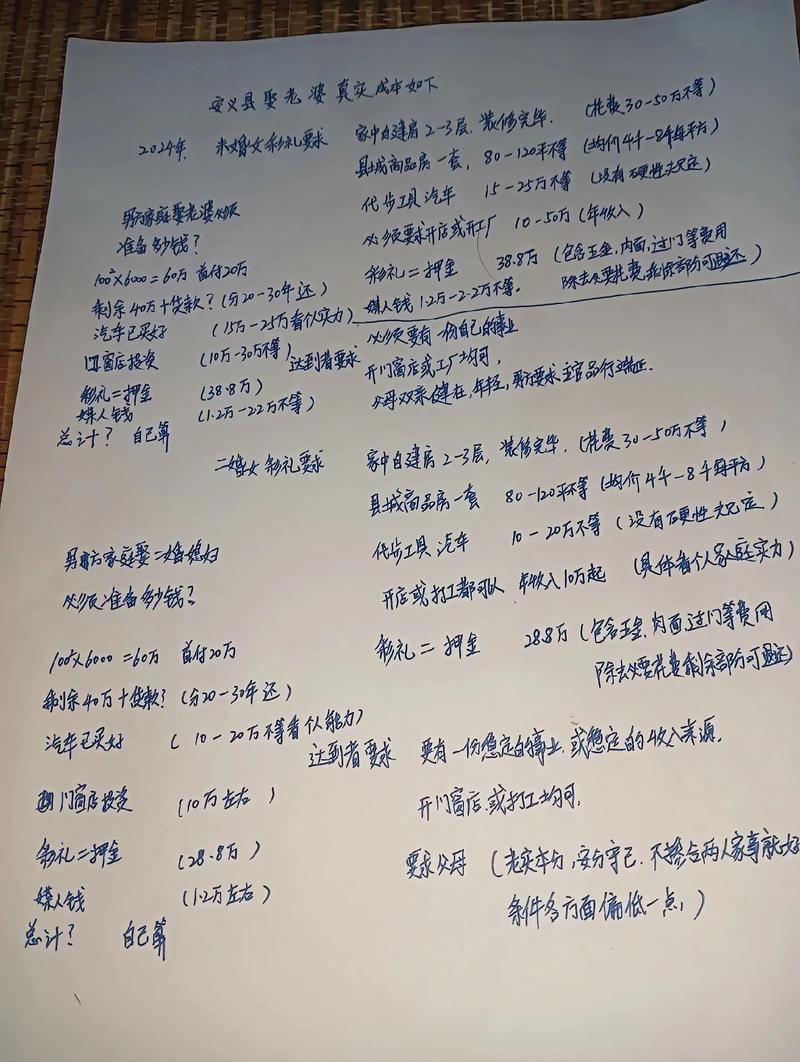 安义县娶老婆真实成本如下
2024年. 未婚女彩礼要求
家中自建房2-3层, 装修完毕. (花费30-50万不等)
县城商品房一套, 80-120平不等 (均价4千-8千每平方)
代步工具汽车 15-25万不等 (没有硬性规定)
必须要求开店或开工厂 10-50万(年收入)
彩礼=押金 38.8万 (包含五金,内面,过门等费用
除去必要花费,剩余部分可退还)
媒人钱1.2万-2.2万不等。
男方家庭娶老婆必须
准备多少钱?
100²×6000=60万 首付20万
剩余40万+贷款?(分20-30年还)
汽车已买好 (15万-25万看个人实力)
门窗店投资 (10万-30万不等)
彩礼=押金 (38.8万)
媒人钱 (1.2万-2.2万不等)
总计? 自己算
达到者要求
必须要有一份自己的事业
开门窗店或工厂均可,
父母双亲健在,年轻,男方要求五官品行端正.
二婚女彩礼要求
家中自建房2-3层, 装修完毕.(花费30-50万不等)
县城商品房一套 80-120平不等(均价4千-8千每平方)
代步工具汽车 10-20万不等 (没有硬性规定)
开店或打工都可以 年收入10万起 (具体看个人家庭实力)
彩礼=押金 28.8万(包含五金,内面,过门等费用
除去必要花费剩余部分可退还)
男方家庭娶二婚媳妇
必须准备多少钱?
100²×6000=60万 首付20万
剩余40万+贷款?(分20-30年还)
汽车已买好 (10-20万不等看个人能力)
门窗店投资 (10万左右)
彩礼=押金 (28.8万)
媒人钱 (1.2万左右)
总计? 自己算
达到者要求 要有一份稳定的事业,或稳定的收入来源.
开门窗店,或打工均可,
要求父母 (老实本分,安分守己.不掺合两人家事就好
条件各方面偏低一点,)